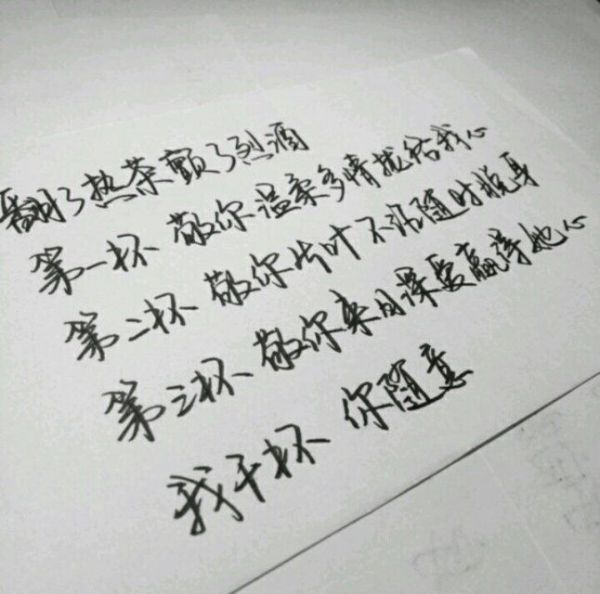 翻了热茶颠了烈酒
第一杯 敬你温柔多情扰给我心
第二杯 敬你片叶不沾随时脱身
第三杯 敬你来日深爱赢得她心
我干杯 你随意